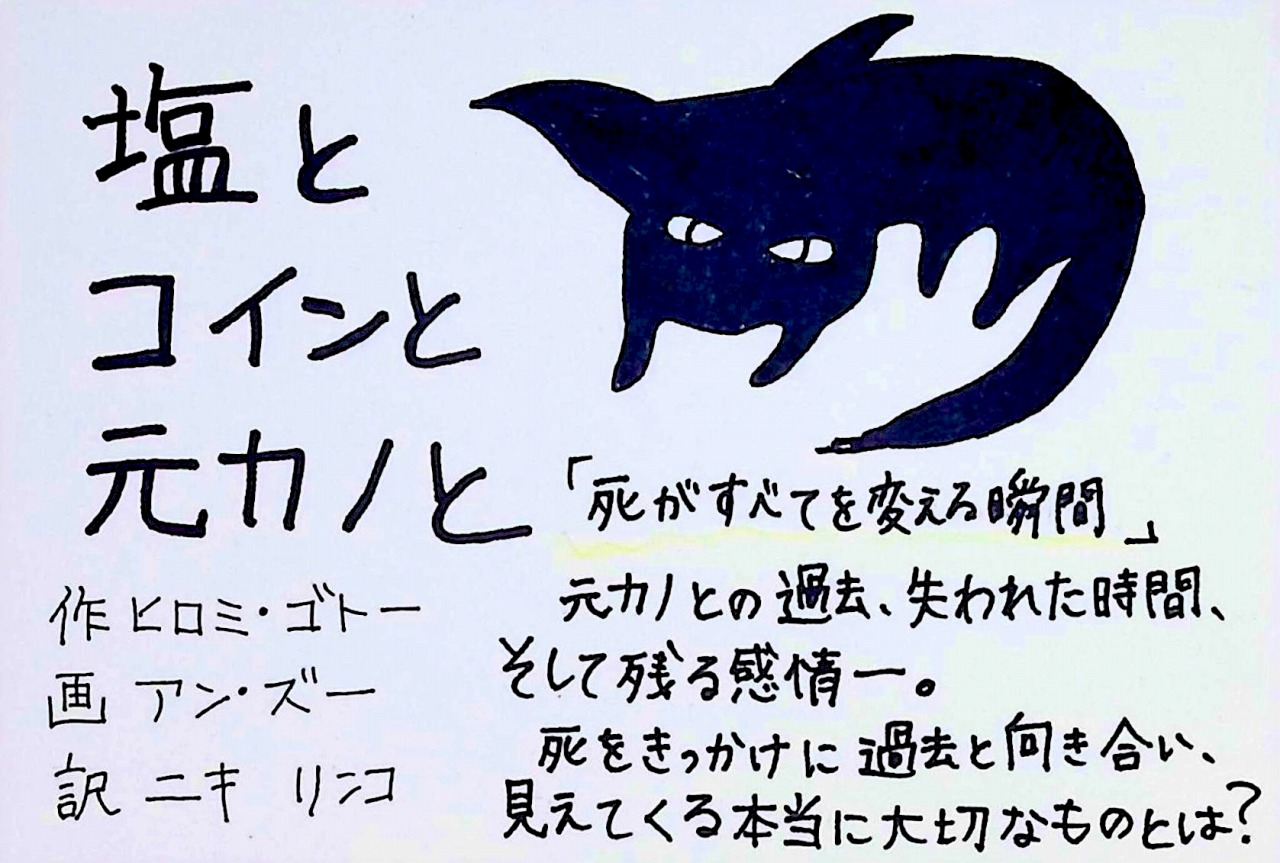 塩と
コインと
元カノと
作 ヒロミ・ゴトー
画 アン・ズー
訳 ニキ リンコ
「死がすべてを変える瞬間」
元カノとの過去、失われた時間、
そして残る感情ー。
死をきっかけに過去と向き合い、
見えてくる本当に大切なものとは?